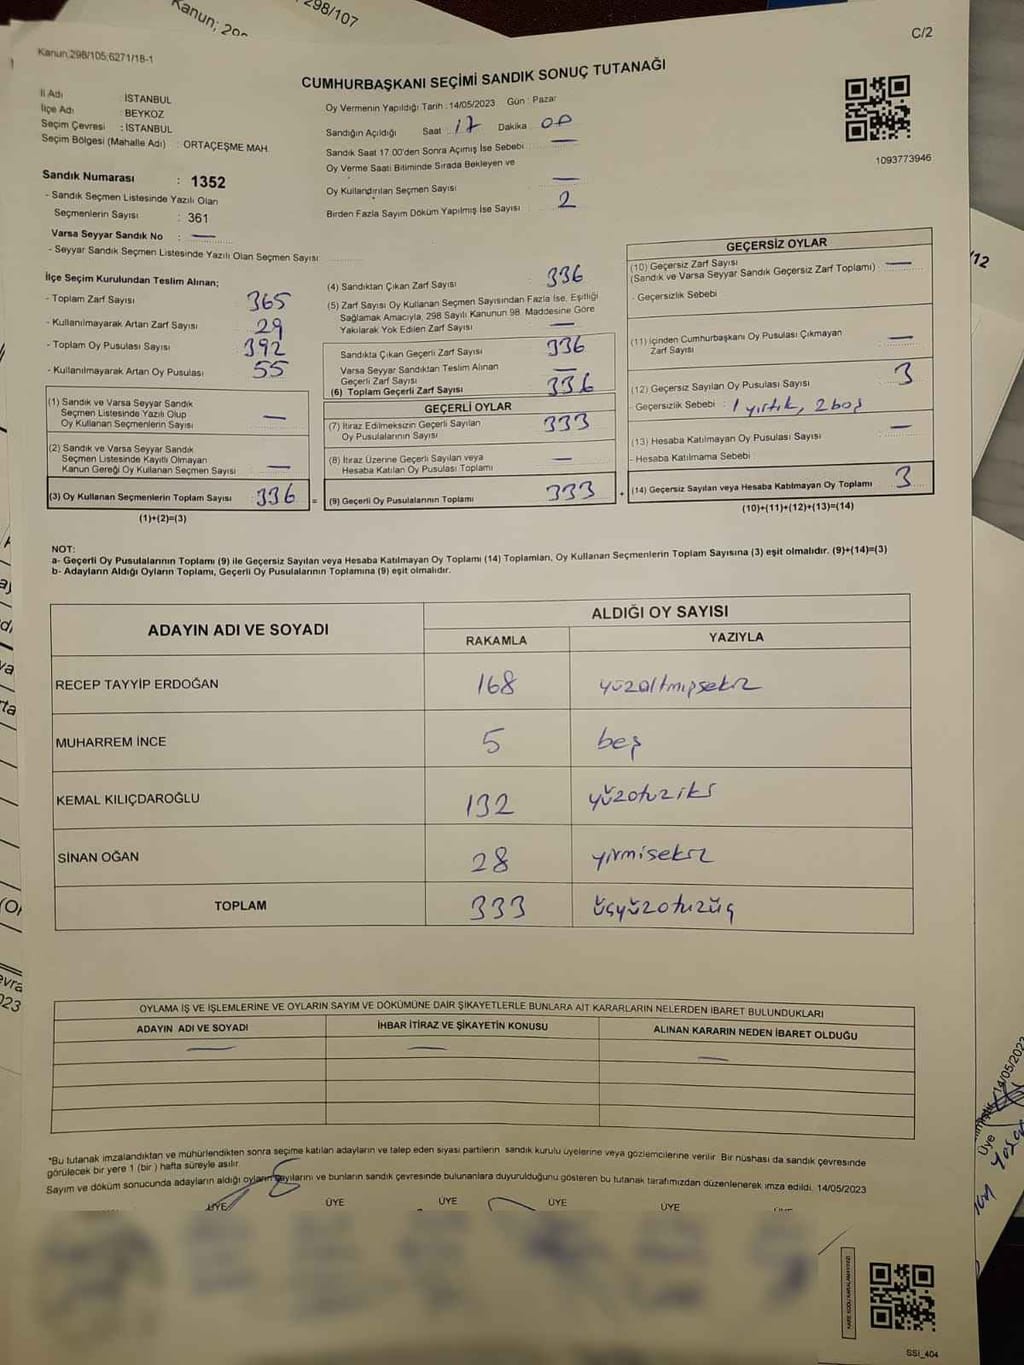 Kanun; 298
298/107
C/2
Kanun;298/105;6271/18-1
CUMHURBAŞKANI SEÇİMİ SANDIK SONUÇ TUTANAĞI
İl Adı : İSTANBUL
İlçe Adı : BEYKOZ
Seçim Çevresi : İSTANBUL
Seçim Bölgesi (Mahalle Adı) : ORTAÇEŞME MAH.
Sandık Numarası : 1352
- Sandık Seçmen Listesinde Yazılı Olan
Seçmenlerin Sayısı : 361
Varsa Seyyar Sandık No : —
- Seyyar Sandık Seçmen Listesinde Yazılı Olan Seçmen Sayısı
Oy Vermenin Yapıldığı Tarih : 14/05/2023 Gün : Pazar
Sandığın Açıldığı Saat 17 Dakika 00
Sandık Saat 17.00'den Sonra Açımış İse Sebebi : —
Oy Verme Saati Bitiminde Sırada Bekleyen ve
Oy Kullandırılan Seçmen Sayısı —
Birden Fazla Sayım Döküm Yapılmış İse Sayısı 2
1093773946
İlçe Seçim Kurulundan Teslim Alınan;
- Toplam Zarf Sayısı 365
- Kullanılmayarak Artan Zarf Sayısı 29
- Toplam Oy Pusulası Sayısı 392
- Kullanılmayarak Artan Oy Pusulası 55
(1) Sandık ve Varsa Seyyar Sandık
Seçmen Listesinde Yazılı Olup
Oy Kullanan Seçmenlerin Sayısı —
(2) Sandık ve Varsa Seyyar Sandık
Seçmen Listesinde Kayıtlı Olmayan
Kanun Gereği Oy Kullanan Seçmen Sayısı —
(3) Oy Kullanan Seçmenlerin Toplam Sayısı 336 =
(1)+(2)=(3)
(4) Sandıktan Çıkan Zarf Sayısı 336
(5) Zarf Sayısı Oy Kullanan Seçmen Sayısından Fazla İse, Eşitliği
Sağlamak Amacıyla, 298 Sayılı Kanunun 98. Maddesine Göre
Yakılarak Yok Edilen Zarf Sayısı —
Sandıkta Çıkan Geçerli Zarf Sayısı 336
Varsa Seyyar Sandıktan Teslim Alınan
Geçerli Zarf Sayısı —
(6) Toplam Geçerli Zarf Sayısı 336
GEÇERLİ OYLAR
(7) İtiraz Edilmeksizin Geçerli Sayılan
Oy Pusulalarının Sayısı 333
(8) İtiraz Üzerine Geçerli Sayılan veya
Hesaba Katılan Oy Pusulası Toplamı —
(9) Geçerli Oy Pusulalarının Toplamı 333 +
GEÇERSİZ OYLAR
(10) Geçersiz Zarf Sayısı —
(Sandık ve Varsa Seyyar Sandık Geçersiz Zarf Toplamı)
- Geçersizlik Sebebi
(11) İçinden Cumhurbaşkanı Oy Pusulası Çıkmayan
Zarf Sayısı —
(12) Geçersiz Sayılan Oy Pusulası Sayısı 3
- Geçersizlik Sebebi : 1 yırtık, 2 boş
(13) Hesaba Katılmayan Oy Pusulası Sayısı —
- Hesaba Katılmama Sebebi
(14) Geçersiz Sayılan veya Hesaba Katılmayan Oy Toplamı 3
(10)+(11)+(12)+(13)=(14)
NOT:
a- Geçerli Oy Pusulalarının Toplamı (9) ile Geçersiz Sayılan veya Hesaba Katılmayan Oy Toplamı (14) Toplamları, Oy Kullanan Seçmenlerin Toplam Sayısına (3) eşit olmalıdır. (9)+(14)=(3)
b- Adayların Aldığı Oyların Toplamı, Geçerli Oy Pusulalarının Toplamına (9) eşit olmalıdır.
ADAYIN ADI VE SOYADI ALDIĞI OY SAYISI
RAKAMLA YAZIYLA
RECEP TAYYİP ERDOĞAN 168 yüzaltmışsekiz
MUHARREM İNCE 5 beş
KEMAL KILIÇDAROĞLU 132 yüzotuziki
SİNAN OĞAN 28 yirmisekiz
TOPLAM 333 üçyüzotuzüç
OYLAMA İŞ VE İŞLEMLERİNE VE OYLARIN SAYIM VE DÖKÜMÜNE DAİR ŞİKAYETLERLE BUNLARA AİT KARARLARIN NELERDEN İBARET BULUNDUKLARI
ADAYIN ADI VE SOYADI İHBAR İTİRAZ VE ŞİKAYETİN KONUSU ALINAN KARARIN NEDEN İBARET OLDUĞU
— — —
*Bu tutanak imzalandıktan ve mühürlendikten sonra seçime katılan adayların ve talep eden siyasi partilerin sandık kurulu üyelerine veya gözlemcilerine verilir. Bir nüshası da sandık çevresinde
görülecek bir yere 1 (bir) hafta süreyle asılır.
Sayım ve döküm sonucunda adayların aldığı oyların sayılarını ve bunların sandık çevresinde bulunanlara duyurulduğunu gösteren bu tutanak tarafımızdan düzenlenerek imza edildi. 14/05/2023
ÜYE ÜYE ÜYE ÜYE ÜYE
SSI_404
/12
14/05/2023
Üye